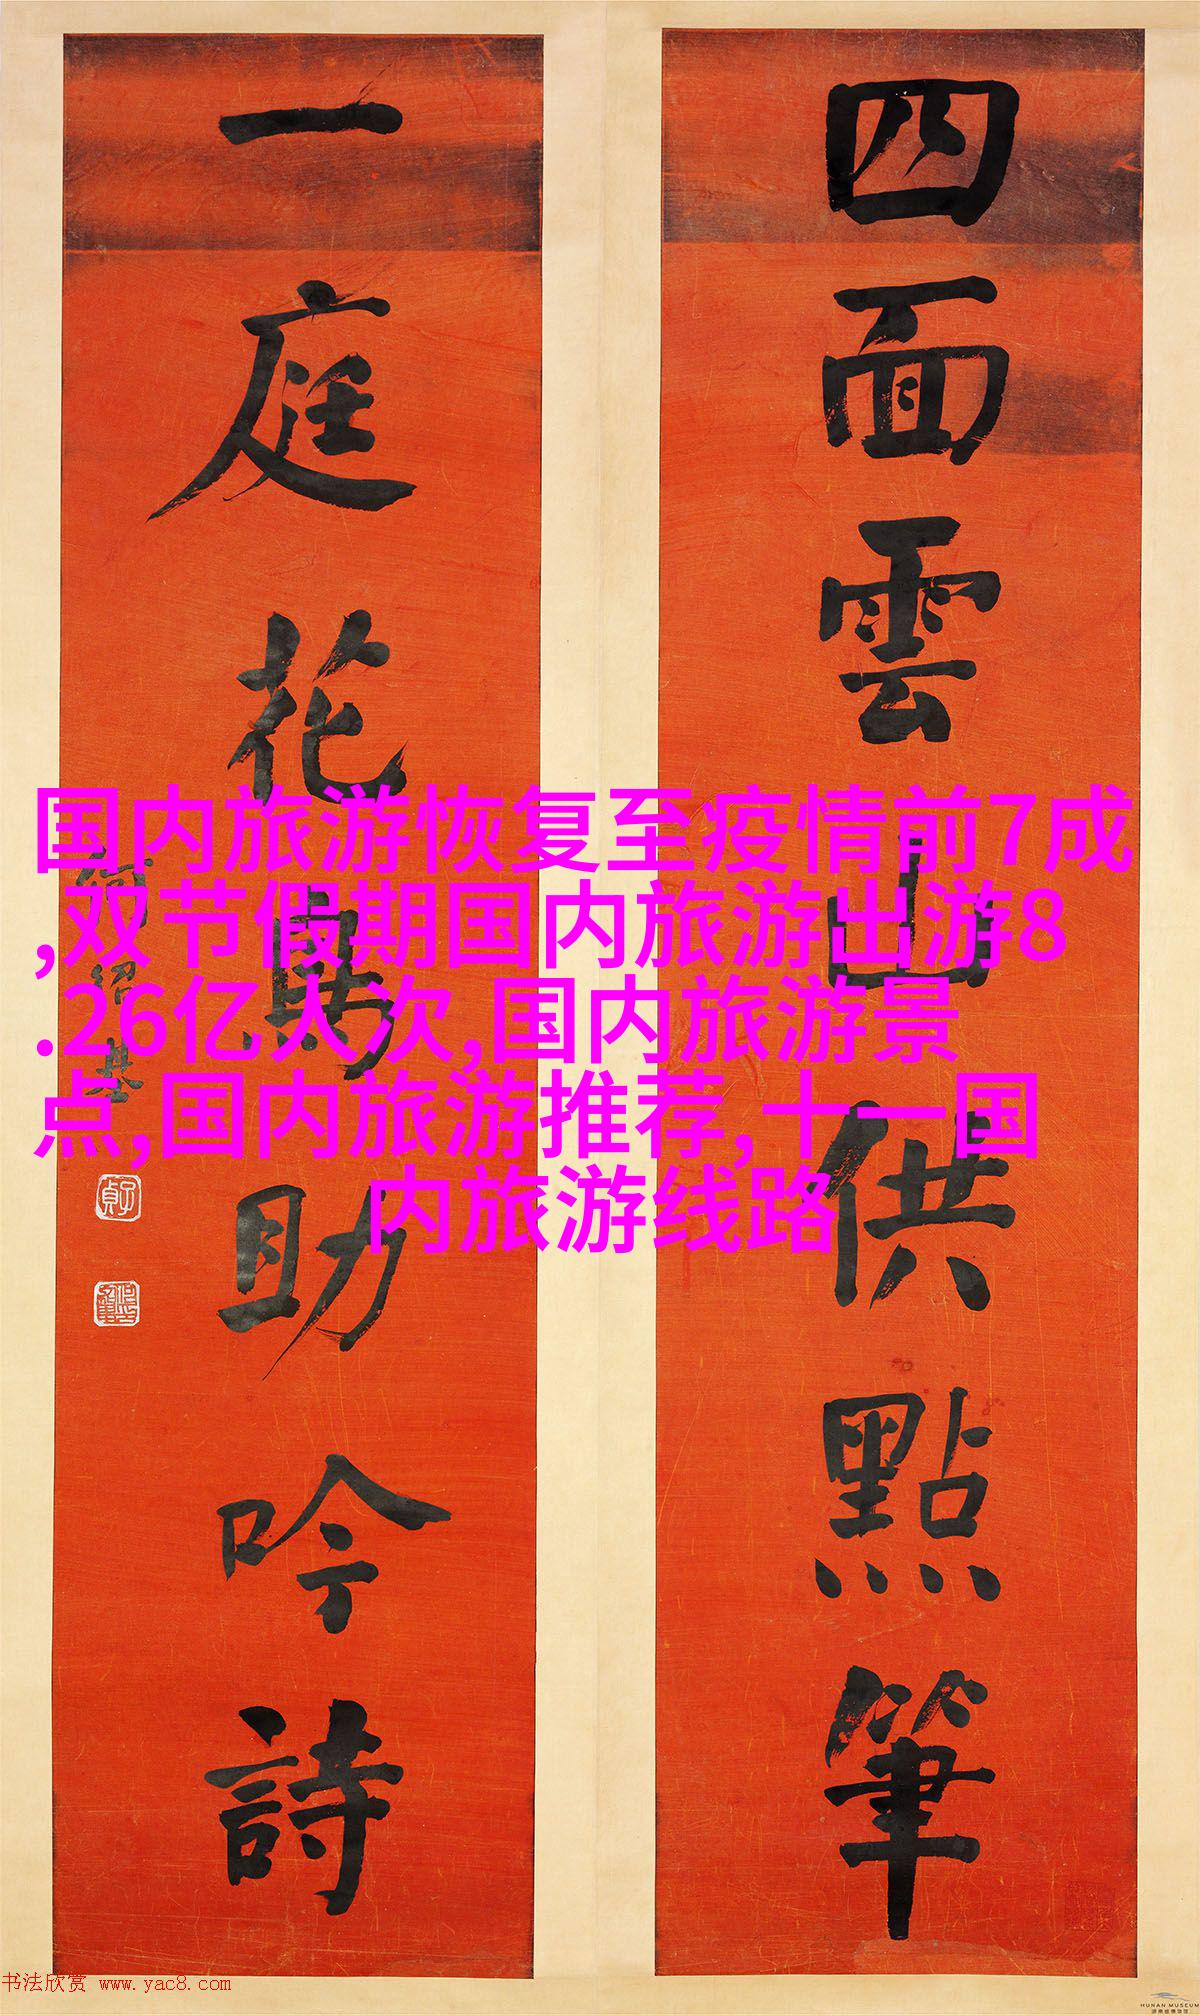 四面雲山供點筆
一庭花鳥助吟詩
何紹基
子貞
国内旅游恢复至疫情前7成
,双节假期国内旅游出游8
.26亿人次,国内旅游景
点,国内旅游推荐,十一国
内旅游线路
书法欣赏 www.yac8.com
HUNAN MUSEUM